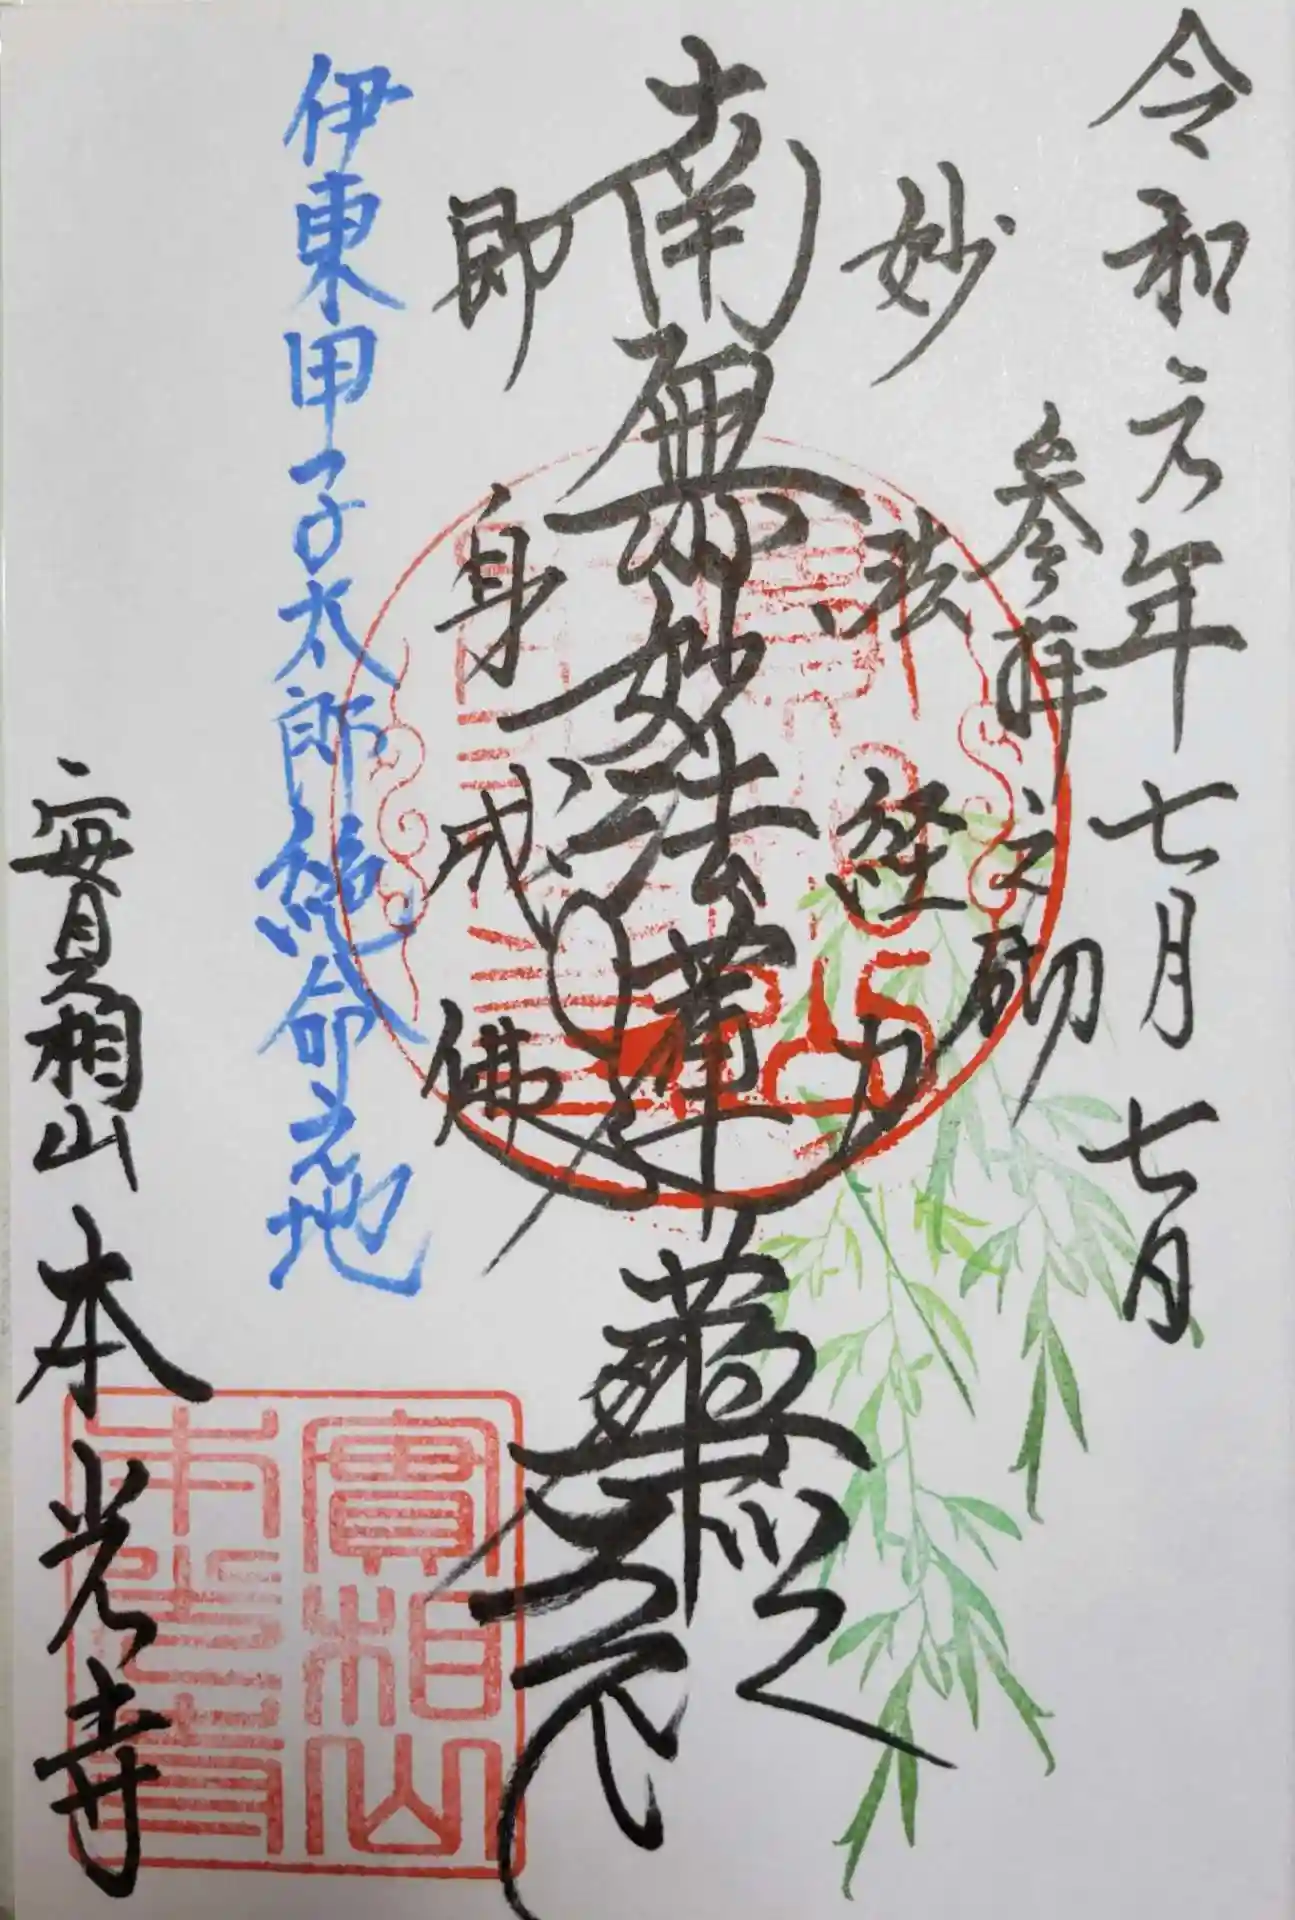 令和元年七月七日
参拝之砌
妙法経力
南無妙法蓮華経
即身成佛
伊東甲子太郎絶命之地
實相山 本光寺
實相山
本光寺